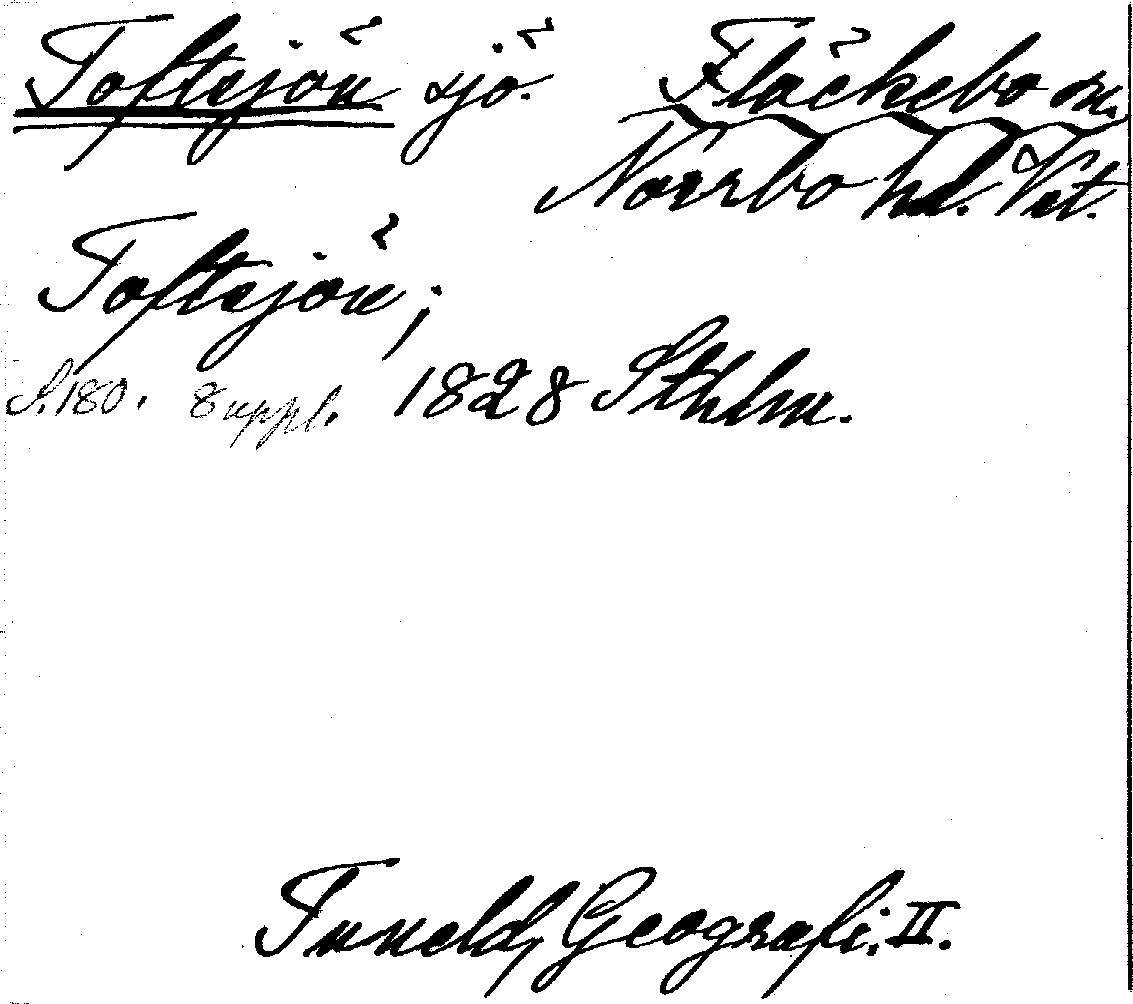 Toftesjön sjö. Fläckebo sn.
Norrbo hd. Vst.
Toftesjön;
S. 180. 8 uppl. 1828 Sthlm.
Tuneld, Geografi. II.